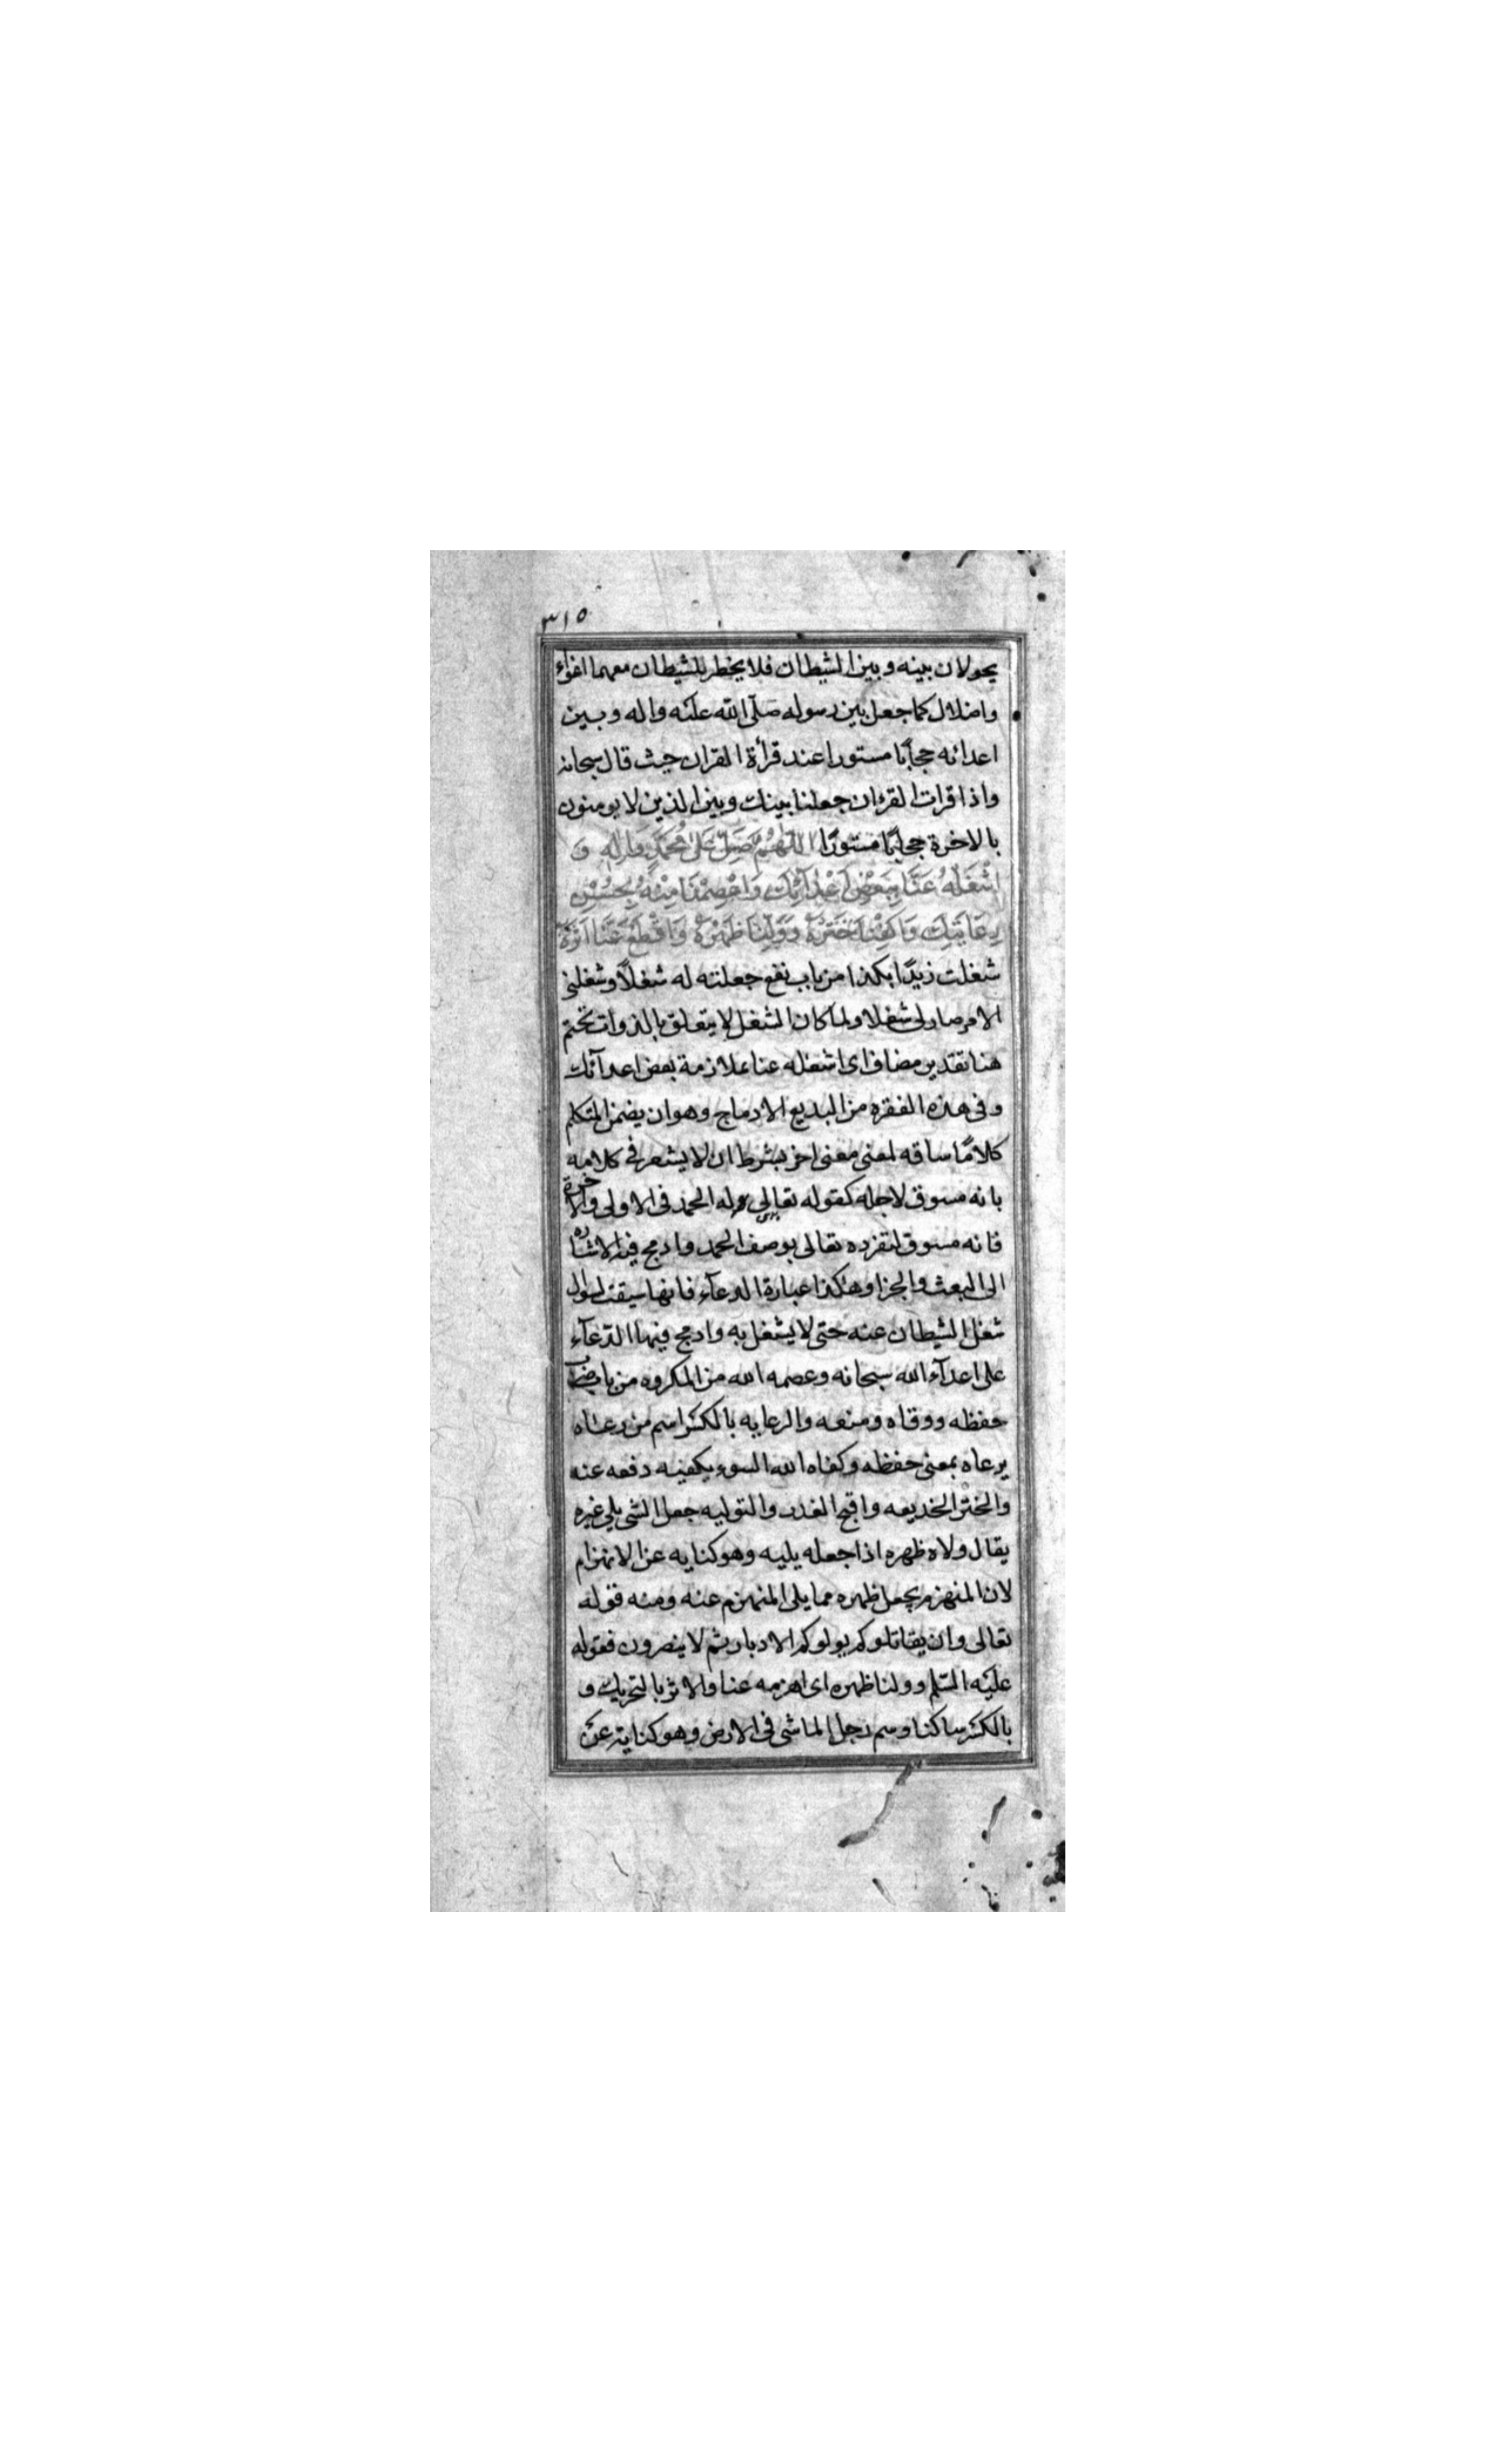 ٣١٥
يحولان بينه و بين الشيطان فلا يخطر للشيطان معهما اغواء
واضلال كما جعل بين رسوله صلّى الله عليه واله وبين
اعدائه حجابًا مستورا عند قرأة القران حيث قال سبحانه
واذا قرات القرءان جعلنا بينك وبين الذين لا يومنون
بالاخرة حجابًا مستورًا اللّهُمَّ صَلِّ عَلى مُحَمَّدٍ وَالِهِ وَ
اشْغَلْهُ عَنَّا بِبَعْضِ اَعْدآئِكَ وَاعْصِمْنَا مِنْهُ بِحُسْنِ
رِعَايَتِكَ وَاكْفِنَا خَتْرَهُ وَوَلِّنَا ظَهْرَهُ وَاقْطَعْ عَنَّا اَثَرَهُ
شغلت زيدًا بكذا من باب نفع جعلته له شغلًا وشغلنى
الامر صار لى شغلا ولما كان الشغل لا يتعلق بالذوات تحتم
هنا تقدير مضاف اى اشغله عنا بملازمة بعض اعدآئك
وفى هذه الفقره من البديع الادماج وهو ان يضمن المتكلم
كلامًا ساقه لمعنى معنى اخر بشرط ان لا يشعر فى كلامه
بانه مسوق لاجله كقوله تعالى وله الحمد فى الاولى والاخرة
فانه مسوق لتفرده تعالى بوصف الحمد وادمج فيه الاشاره
الى البعث والجزا وهكذا عبارة الدعآء فانها سيقت لسوال
شغل الشيطان عنه حتى لا يشغل به وادمج فيها الدّعآء
على اعدآء الله سبحانه وعصمه الله من المكروه من باب ضرب
حفظه ووقاه ومنعه والرعايه بالكسر اسم من رعاه
يرعاه بمعنى حفظه وكفاه الله السوء يكفيه دفعه عنه
والختر الخديعه واقبح الغدر والتوليه جعل الشى يلى غيره
يقال ولاه ظهره اذا جعله يليه وهو كنايه عن الانهزام
لان المنهزم يجعل ظهره مما يلى المنهزم عنه ومنه قوله
تعالى وان يقاتلوكم يولوكم الادبار ثم لا ينصرون فقوله
عليه السّلم وولنا ظهره اى اهزمه عنا والاثر بالتحريك و
بالكسر ساكنا وسم رجل الماشى فى الارض وهو كناية عن